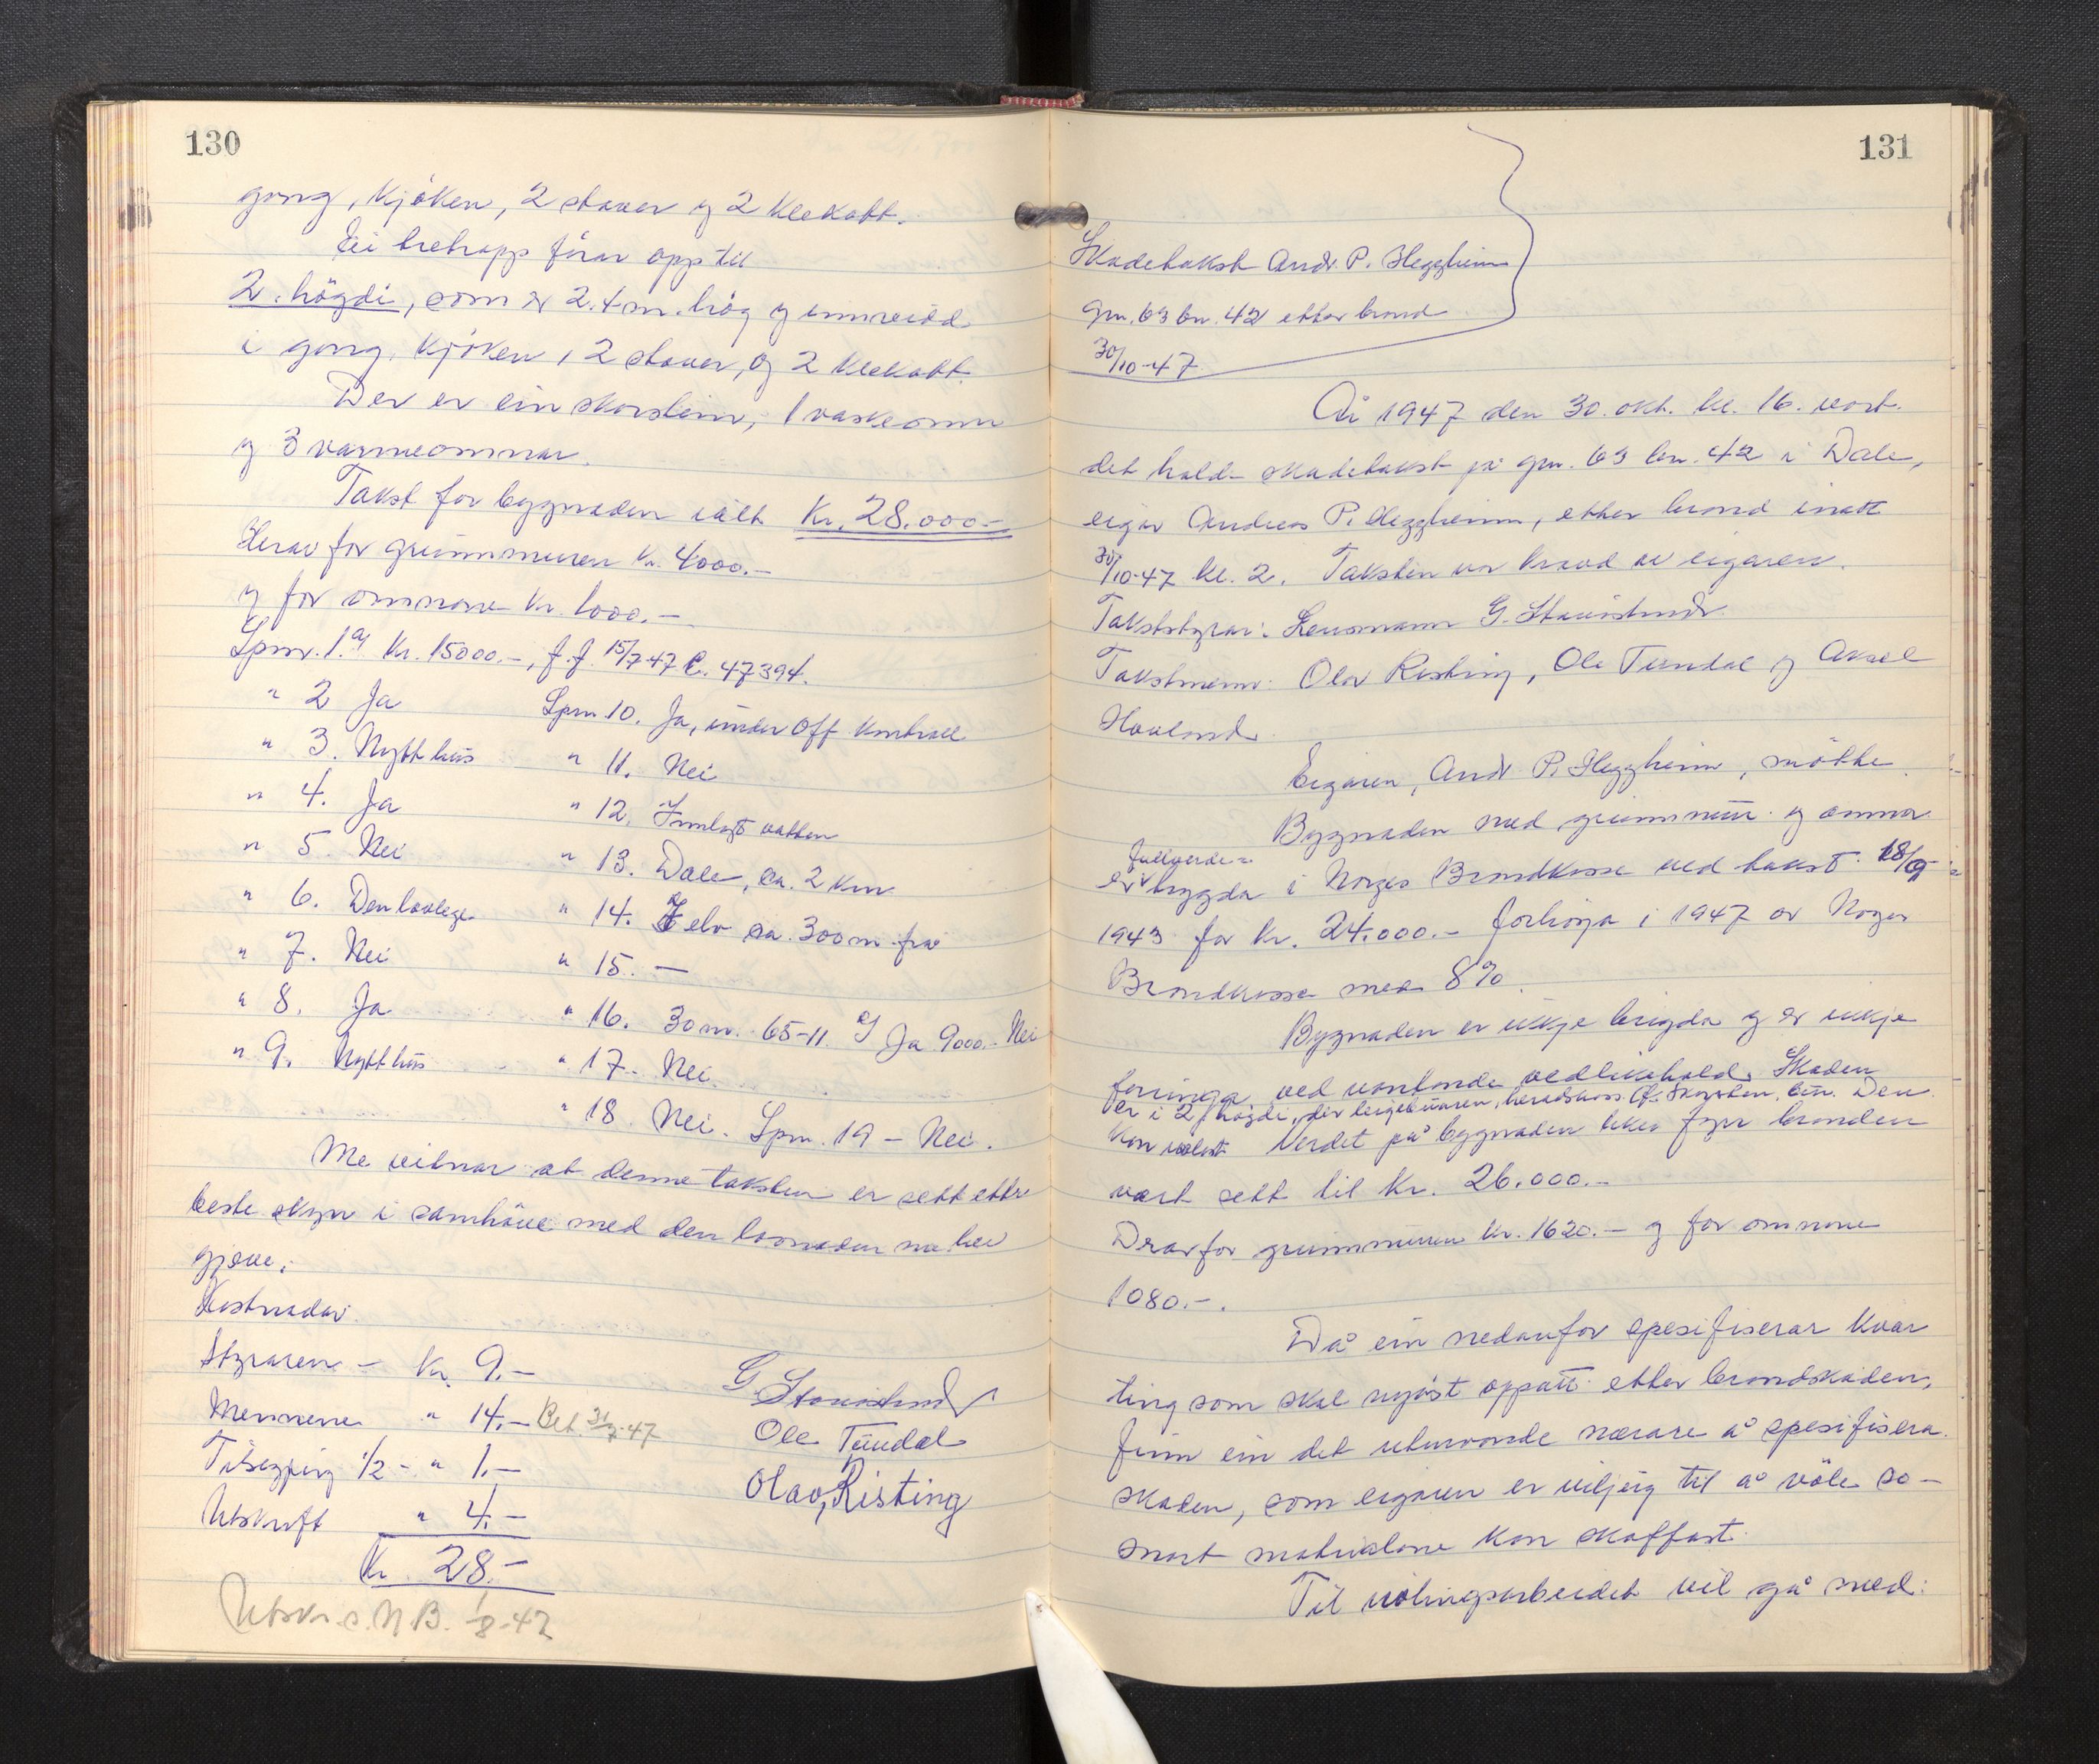 130
gong, kjøken, 2 stover og 2 kleskott.
Ei tretrapp förar opp til
2. högdi, som er 2.4 m. høg og innreidd
i gong, kjøken, 2 stover, og 2 kleskott.
Der er ein skorstein, 1 vaskeomn
og 3 varmeomnar.
Takst for bygnaden ialt Kr. 28.000.-
Herav for grunnmuren kr. 4000.-
og for omnane kr. 1000.-
Spm. 1.a) Kr. 15000.-, f.f. 15/7-47 C. 47394.
" 2 Ja
Spm 10. Ja, under off kontroll
" 3. Nytt hus
" 11. Nei
" 4. Ja
" 12. Innlagt vatten
" 5. Nei
" 13. Dale, ca. 2 km
" 6. Den lovlege
" 14. Elv ca. 300 m frå
" 7. Nei
" 15. —
" 8. Ja
" 16. 30 m. 65-11. c) Ja 9000.- Nei
" 9. Nytt hus
" 17. Nei.
" 18. Nei. Spm. 19 - Nei.
Me vitnar at denne taksten er sett etter
beste skyn i samhöve med den lovnaden me hev
gjeve.
Kostnader:
Styraren - Kr. 9.-
Mennene " 14.- Bet. 31/7-47
Tilseging 1/2 - " 1.-
Utskrift " 4.-
Kr. 28.-
G. Staurlund
Ole Tundal
Olav Risting
Utskr. s. N.B. 1/8-47
131
Skadetakst Andr. P. Heggheim
gnr. 63 bn. 42 etter brand
30/10-47
År 1947 den 30. okt. kl. 16. vart
det halde skadetakst på gnr. 63 bn. 42 i Dale,
eigar Andreas P. Heggheim, etter brand inatt
30/10-47 kl. 2. Taksten var kravd av eigaren.
Takststyrar: Lensmann G. Staurlund
Takstmenn: Olav Risting, Ole Tundal og Aksel
Hovland
Eigaren, Andr P. Heggheim, møtte.
Bygnaden med grunnmur og omnar
fullverde-
er trygda i Norges Brandkasse ved takst 18/9-
1943 for kr. 24.000.- forhöga i 1947 av Noregs
Brandkasse med 8%.
Bygnaden er ikkje brigda og er ikkje
forringa ved vantande vedlikehald. Skaden
er i 2. högdi, der leigebuaren, bur. Den
kan Verdet på bygnaden like fyr branden
vart sett til kr. 26.000.-
Derav for grunnmuren kr. 1620.- og for omnane
1080.-.
Då ein nedanfor spesifiserar kvar
ting som skal nyast oppatt etter brandskaden,
finn ein det uturvande nærare å spesifisera
skaden, som eigaren er viljug til å vøle so-
snart materialane kan skaffast.
Til vølingsarbeidet vil gå med: